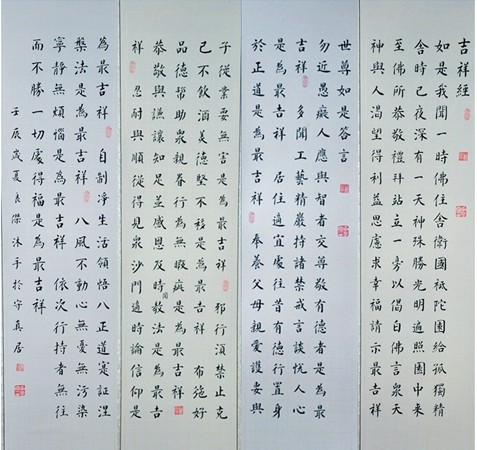 吉祥經
如是我聞一時佛住舍衛國祇陀園給孤獨精
舍時已夜深有一天神殊勝光明遍照園中來
至佛所恭敬禮拜站立一旁以偈白佛言眾天
神與人渴望得利益思慮求幸福請示最吉祥
世尊如是答言
勿近愚癡人應與智者交尊敬有德者是為最
吉祥 多聞工藝精嚴持諸禁戒言談悅人心
是為最吉祥 居住適宜處往昔有德行置身
於正道是為最吉祥 奉養父母親愛護妻與
子從業要無害是為最吉祥 邪行須禁止克
己不飲酒美德堅不移是為最吉祥 布施好
品德幫助眾親眷行為無瑕疵是為最吉祥
恭敬與謙讓知足並感恩及時聞教法是為最吉
祥 忍耐與順從得見眾沙門適時論信仰是
為最吉祥 自制淨生活領悟八正道實證涅
槃法是為最吉祥 八風不動心無憂無污染
寧靜無煩惱是為最吉祥 依次行持者無往
而不勝一切處得福是為最吉祥
壬辰歲夏良傑沐手於守真居